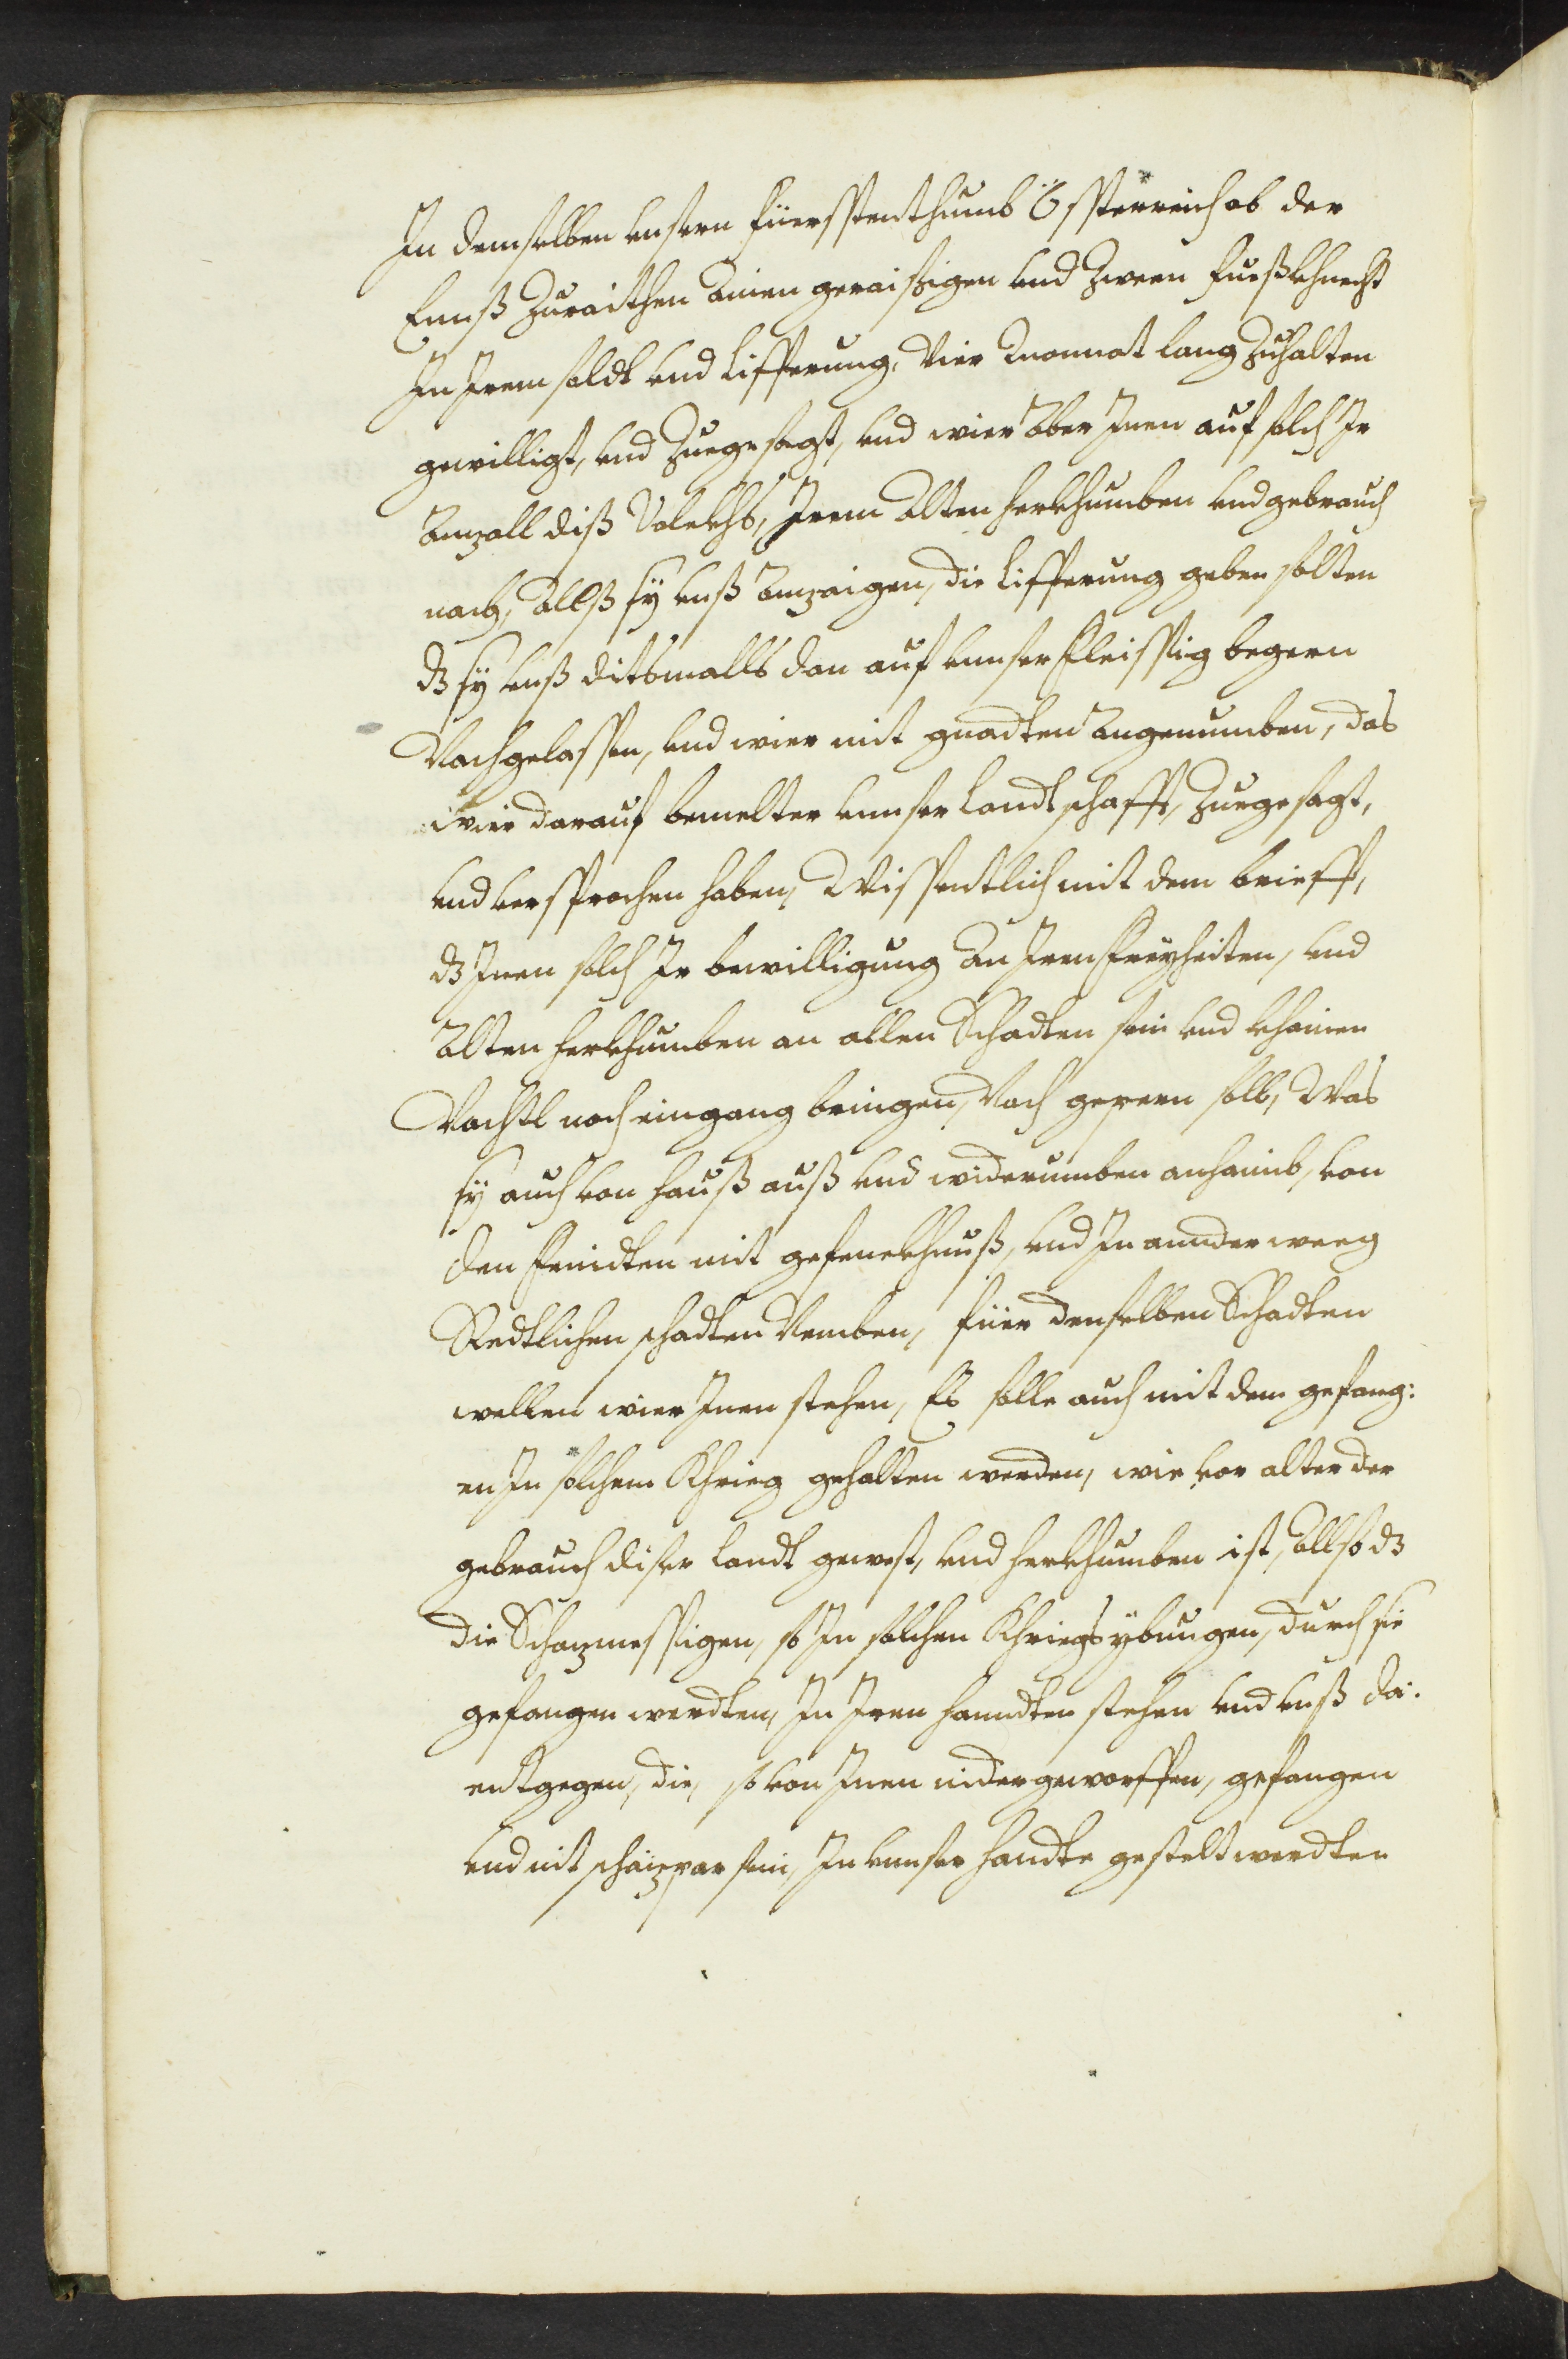 In demselben unsern Füersstenthumb Össterreich ob der
Ennß Zuraithen Ainen geraisigen und Zween Fueßkhnecht
In Irem soldt und Lifferung, Vier Monnat lang Zuhalten
gewilligt, und Zuegesagt, und wier Aber Inen auf solch Ir
Anzall diß Volckhs, Irem Alten herkhumben und gebrauch
nach, Allß sÿ unß Anzaigen, die Lifferung geben solten
dz sÿ unß ditsmalls dan auf unnser fleissig begern
Nachgelassen, und wier mit gnadten Angenumben, das
wier darauf bemelter unnser Landtschafft, Zuegesagt,
und versprochen haben, Wissentlich mit dem brieff,
dz Inen solch Ir bewilligung An Iren Freyheiten, und
Alten herkhumben an allen Schadten sein und khainen
Nachtl noch eingang bringen, Noch geperen soll, Was
sÿ auch von hauß auß und widerumben anhaimb, von
den feindten mit gefenckhnuß, und In annder weeg
Redtlichen schadten Nemben, füer denselben Schadten
wellen wier Inen stehen, Es solle auch mit dem gefang:
en In solchem Khrieg gehalten werden, wie vor alter der
gebrauch diser Landt gewest, und herkhumben ist, Allso dz
die Schazmessigen, so In solchen Khriegsybungen, durch sie
gefangen werdten, In Iren hanndten stehen und unß da:
entgegen, die, so von Inen nidergeworffen, gefangen
und nit schäzpar sein, In unnser handte gestelt werdten